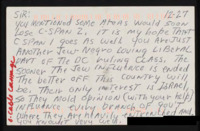 SIR: 12-27
YOU MIGHT KNOW SOME AREAS WOULD SOON
LOSE C-SPAN 2. IT IS MY HOPE THAT
C-SPAN I GOES AS WELL. YOU ARE JUST
ANOTHER JEW NEGRO LOVING LIBERAL
PART OF THE DC RULING CLASS. THE
SOONER THE JEW INFLUENCE IS ENDED
THE BETTER OFF THIS COUNTRY WILL
BE. THEIR ONLY INTEREST IS ISRAEL
SO THEY MOLD OPINION (WITH YOUR HELP)
AND FINANCE EVERY BRANCH OF GOV'T
WHERE THEY ARE HEAVILY ENTRENCHED AND
YOU KNOW IT VERY WELL